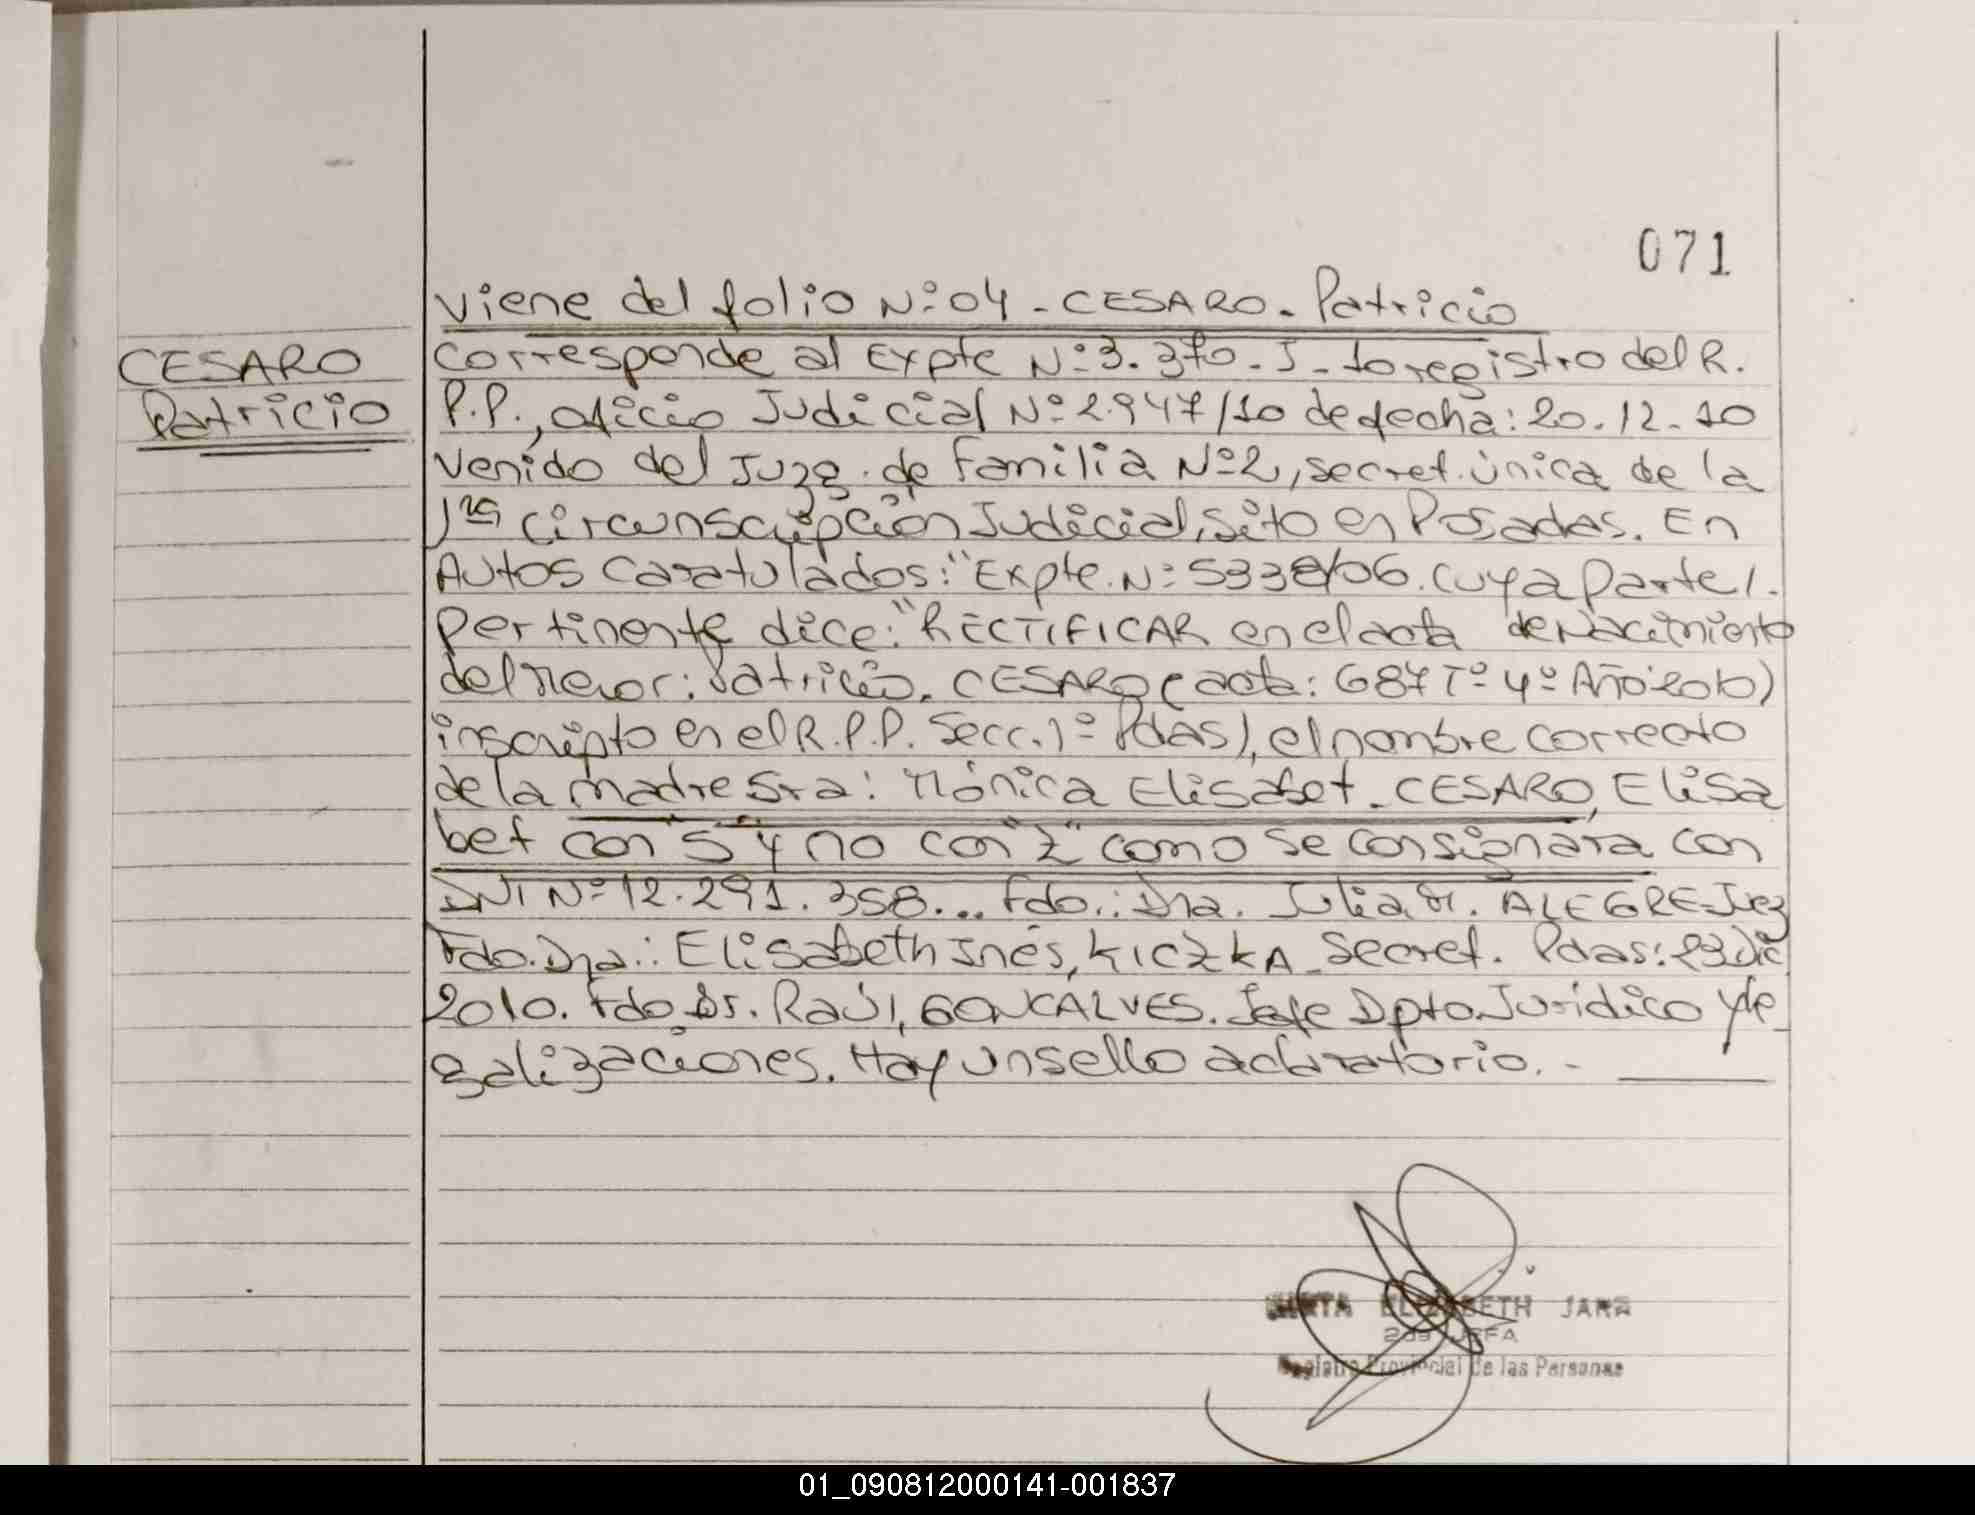 071
Viene del folio Nº 04 - CESARO. Patricio
CESARO
Patricio
Corresponde al Expte Nº 3.370. J - registro del R.
P.P., oficio Judicial Nº 2.947/10 de fecha: 20.12.10
Venido del Juzg. de Familia Nº 2, secret. única de la
1ra circunscripción Judicial, sito en Posadas. En
Autos Caratulados: "Expte. Nº 5338/06. cuya parte /.
pertinente dice: "RECTIFICAR en el acta de Nacimiento
del menor: Patricio. CESARO (acta: 687 Tº 4º Año 2010)
inscripto en el R.P.P. Secc. 1º Pdas), el nombre correcto
de la madre Sra: Mónica Elisabet. CESARO, Elisa
bet con "S" y no con "Z" como se consignara con
DNI Nº 12.291.358... Fdo.: Dra. Julia ALEGRE - Juez
Fdo. Dra.: Elisabeth Inés, KICZKA - Secret. Pdas: 23 Dic
2010. Fdo. Dr. Raúl, GONCALVES. Jefe Dpto. Jurídico y Le_
galizaciones. Hay un sello aclaratorio. -
ELIZABETH JARA
2da JEFA
Registro Provincial de las Personas
01_090812000141-001837